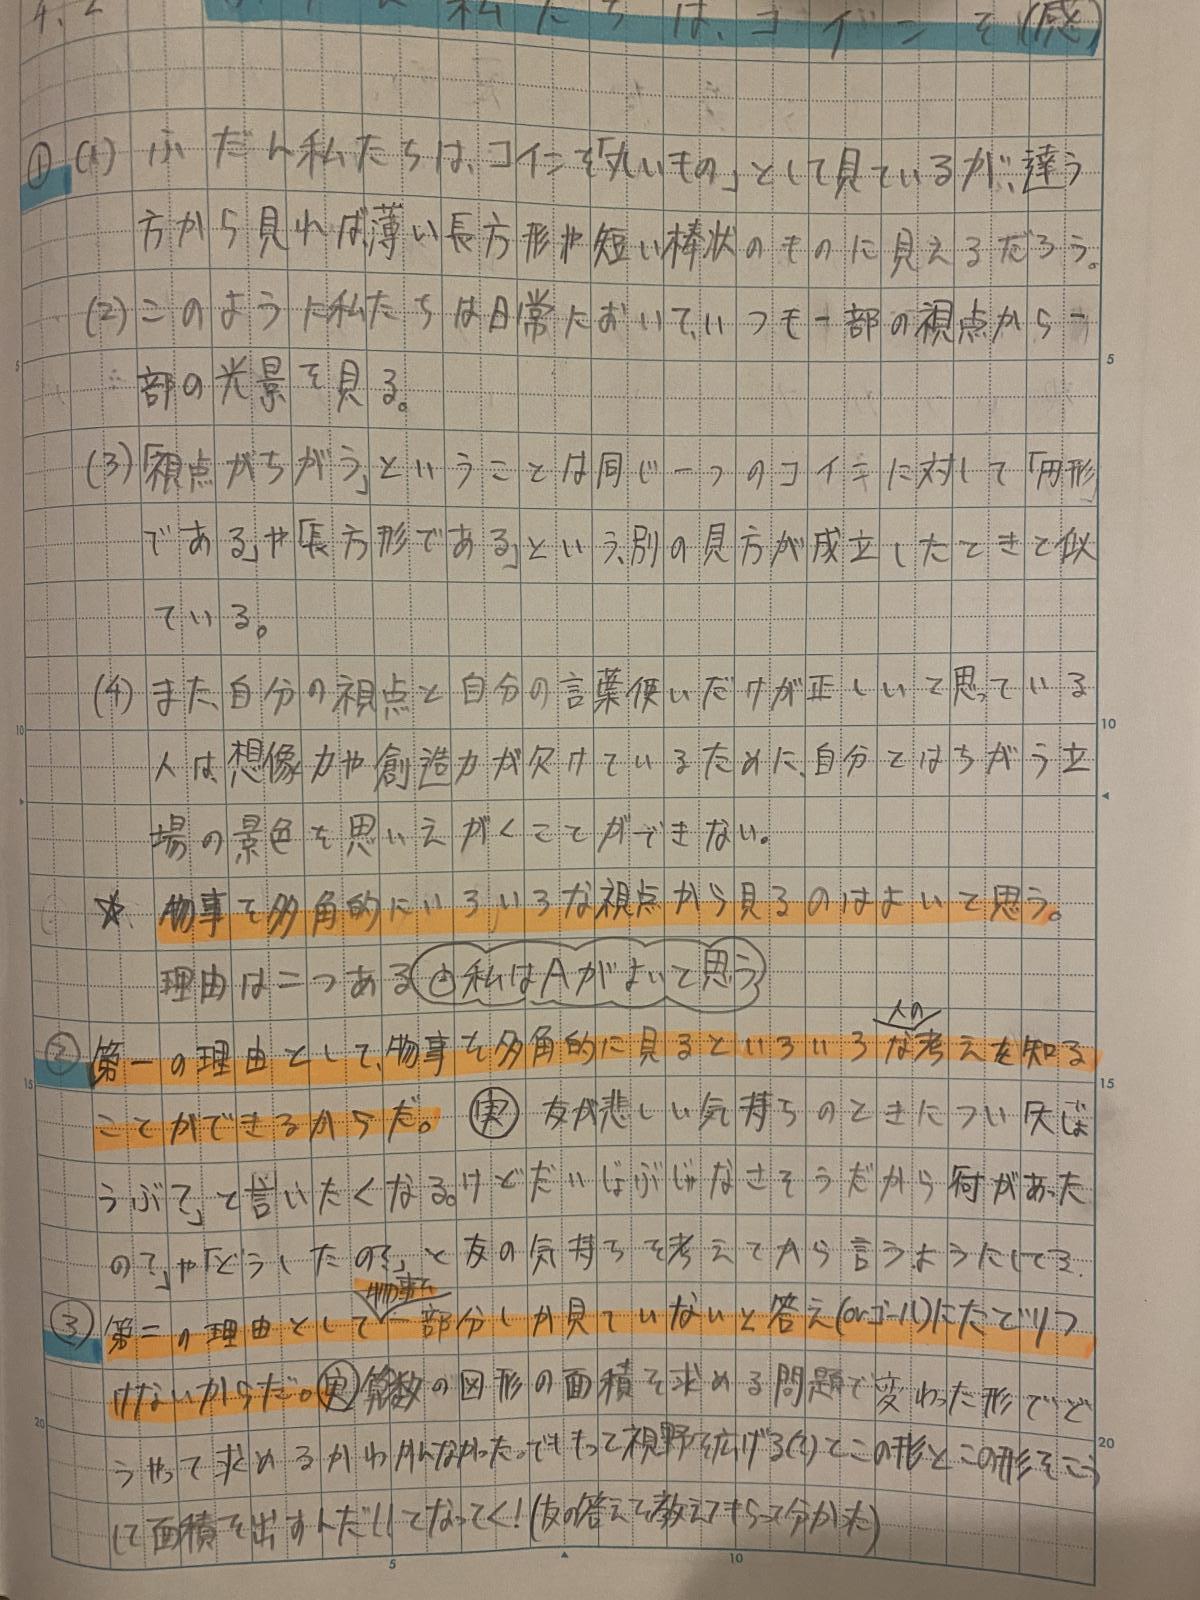 私たちは、コインを(感)
① (1) ふだん私たちは、コインを「丸いもの」として見ているが、違う
方から見れば、薄い長方形や短い棒状のものに見えるだろう。
(2) このように私たちは日常において、いつも一部の視点から一
部の光景を見る。
(3) 「視点がちがう」ということは同じ一つのコインに対して「円形
である」や「長方形である」という、別の見方が成立したときと似
ている。
(4) また、自分の視点と自分の言葉使いだけが正しいと思っている
人は、想像力や創造力が欠けているために、自分とはちがう立
場の景色を思いえがくことができない。
☆ 物事を多角的にいろいろな視点から見るのはよいと思う。
理由は二つある 私はAがよいと思う
人の
② 第一の理由として、物事を多角的に見るといろいろな考えを知る
ことができるからだ。 実 友が悲しい気持ちのときについ「大じょ
うぶ?」と言いたくなる。けどだいじょぶじゃなさそうだから「何があった
の?」や「どうしたの?」と友の気持ちを考えてから言うようにしてる.
物事を
③ 第二の理由として一部分しか見ていないと答え(orゴール)にたどりつ
けないからだ。実 算数の図形の面積を求める問題で変わった形でど
うやって求めるかわかんなかった。でももっと視野を広げる(?)とこの形とこの形をこう
して面積を出すんだ!!ってなってく!(友の答えを教えてもらって分かった)
5
10
15
20
5
10
15
20
5
10